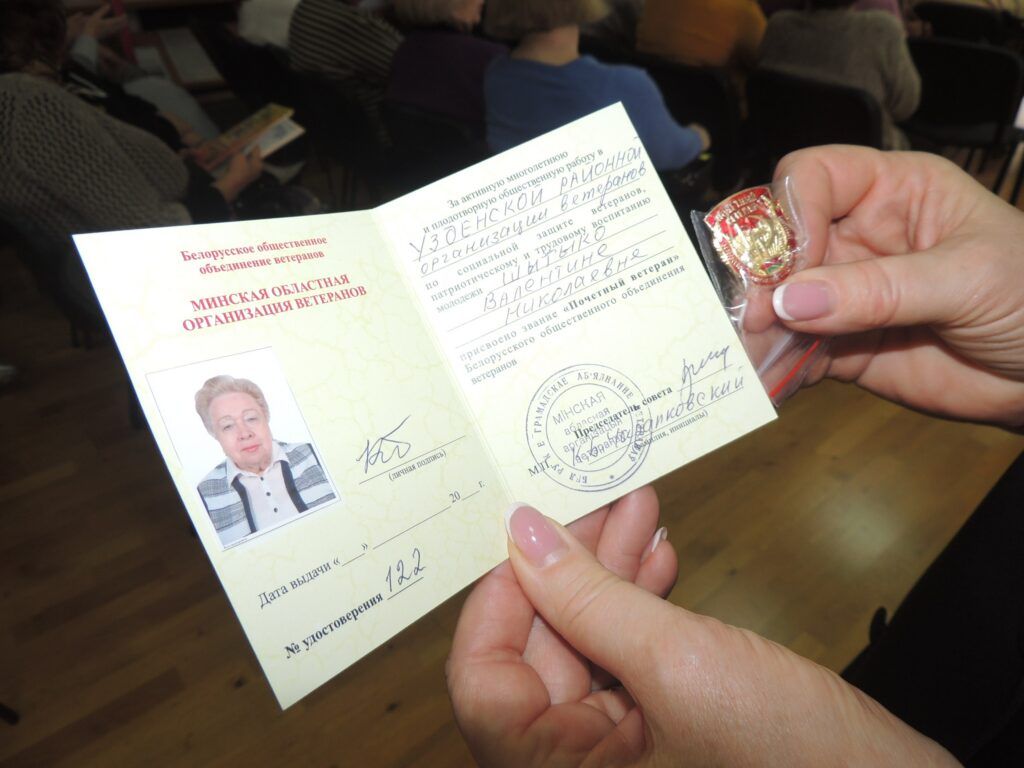 Белорусское общественное
объединение ветеранов
МИНСКАЯ ОБЛАСТНАЯ
ОРГАНИЗАЦИЯ ВЕТЕРАНОВ
(личная подпись)
Дата выдачи «___» ___________ 20___ г.
№ удостоверения 122
За активную многолетнюю
и плодотворную общественную работу в
УЗДЕНСКОЙ РАЙОННОЙ
организации ветеранов
по социальной защите ветеранов,
патриотическому и трудовому воспитанию
молодежи ШЫТЬКО
Валентине
Николаевне
присвоено звание «Почетный ветеран»
Белорусского общественного объединения
ветеранов
Председатель совета
М.П.
МІНСКАЯ
абласная
арганізацыя
ветэранаў